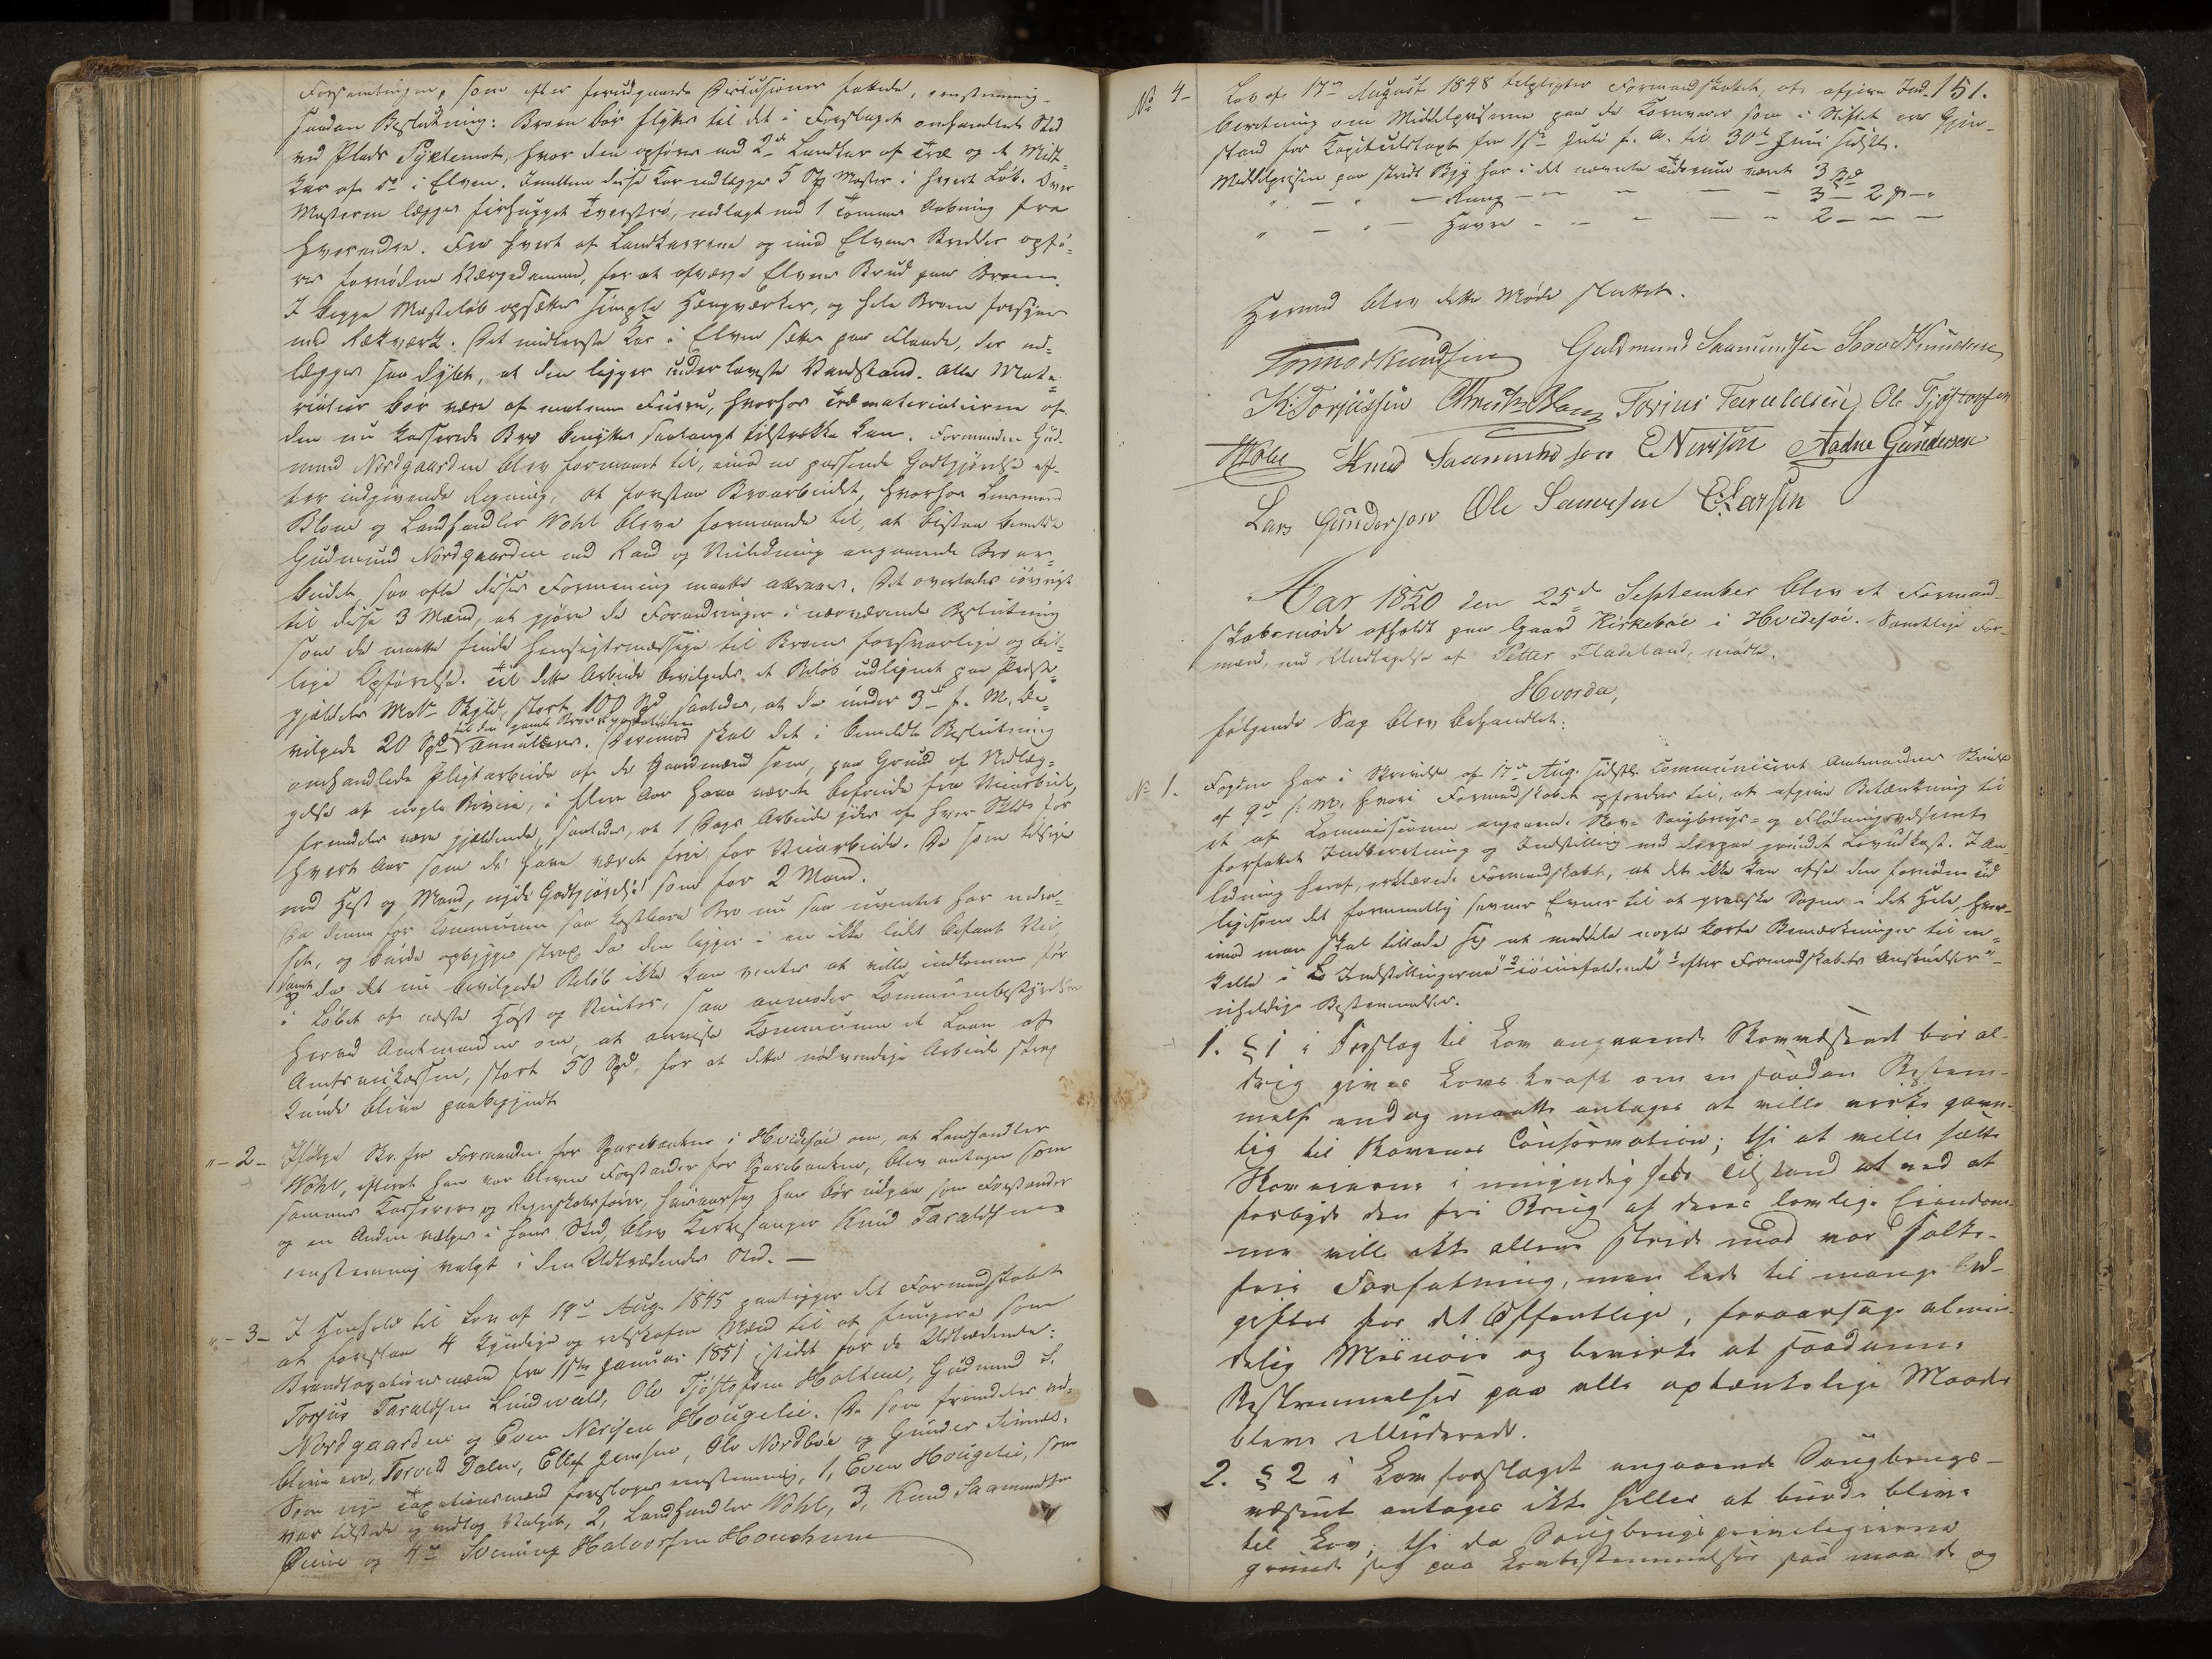 Forsamlingen, som efter forudgaaende Discusioner fattede, eenstemmig
saadan Beslutning: Broen bør flyttes til det i Forslaget omhandlede Sted
ved Plads , hvor den opføres med 2de Landkar af Træ og et Midt-
kar af do i Elven. Imellem disse Kar udlægges 5 Stkr Master i hvert Løb. Over
Masterne lægges firhugget Tverstrø, udlagt med 1 Tommes Aabning fra
hverandre. For hvert af Landkarrene og ved Elvens Bredder opfø-
res fornøden , for at afværge Elvens Brud paa Broen.
I begge Masteløb opsættes simple Hængværker, og hele Broen forsynes
med Rækværk. Det midterste Kar i Elven sættes paa Flaade, der ned-
lægges saa dybt, at den ligger under laveste Vandstand. Alle Mate-
rialier bør være af malmen Furru, hvorhos Træmaterialierne af
den nu kasserede Bro benyttes saalangt tilstrække kan. Formanden Gud-
mund Nordgaarden blev formaaet til, imod en passende Godtgjørelse ef-
ter indgivende Regning, at forestaa Broarbeidet, hvorhos Lensmand
Blom og Landhandler Wohl bleve formaaede til, at bistaa bemeldte
Gudmund Nordgaarden med Raad og Veiledning angaaende Broar-
beidet, saa ofte disses Formening maatte attraaes. Det overlades iøvrigt
til disse 3 Mænd, at gjøre de Forandringer i nærværende Beslutning
som de maatte finde hensigtsmæssige til Broens forsvarlige og bil-
lige Opførelse. Til dette Arbeide bevilgedes et Beløb udlignet paa Præste-
gjældets Matr. Skyld, stort 100 Spd, saaledes, at de under 3die f. M. be-
til den gamle Broes Reparation
vilgede 20 Spd annulleres. Derimod skal det i bemeldte Beslutning
omhandlede Pligtarbeide af de Gaardmænd som, paa Grund af Nedlæg-
gelse af nogle Veie, i flere Aar have været befriede fra Veiarbeide,
fremdeles være gjældende, saaledes, at 1 Dags Arbeide ydes af hver Skld. for
hvert Aar som de have været frie for Veiarbeide. De som tilsiges
med Hest og Mand, nyde Godtgjørelse som for 2 Mand.
Da denne for Kommunen saa kostbare Bro nu saa uventet har
, og burde opbygges strax da den ligger i en ikke lidt befaret Vei,
samt da det nu bevilgede Beløb ikke kan ventes at ville indkomme før
i Løbet af næste Høst og Vinter, saa anmoder Kommunebestyrelsen
herved Amtmanden om, at anvise Kommunen et Laan af
Amtsveikassen, stort 50 Spd, for at dette nødvendige Arbeide strax
kunde blive paabegyndt
"-2- Ifølge Skr. fra Formanden for Sparebanken i Hvidesøe om, at Landhandler
Wohl, efterat han var bleven Forstander for Sparebanken, blev antagen som
sammes Kasserer og Regnskabsfører, hvisaarsag han bør udgaae som Forstander
og en Anden vælges i hans Sted, blev Kirkesanger Knud Taraldsen
eenstemmig valgt i den Udtrædendes Sted. —
"-3- I Henhold til Lov af 19de Aug. 1845 paaligger det Formandskabet
at foreslaa 4 kyndige og retskafne Mænd til at fungere som
Brandtaxationsmænd fra 1ste Januar 1851 istedet for de Udtrædende:
Torjus Taraldsen Lindvald, Ole Tjøstolfsen Holtene, Gudmund S.
Nordgaarden og Even Nersjen Hougelie. De som fremdeles ved-
blive ere, Torvild Dalen, Ellef Jensen, Ole Nordbøe og Gunder Sinnes.
Som nye Taxationsmænd foreslages eenstemmig, 1, Even Hougelie, som
var tilstede og modtog Valget, 2, Landhandler Wohl, 3, Knud Saamundsen
Øeine og 4de Svenung Halvorsen
151.
No 4- Lov af 17de August 1848 tilpligter Formandskabet, at afgive Ind-
beretning om Middelpriserne paa de Kornvarer som i Stiftet ere Gjen-
stand for Kapitulstaxt fra 1ste Juli f. A. til 30te Juni sidstl.
Middelprisen paa stridt Byg har i det nævnte Tidsrum været 3 Spd
" — " — Rug — — — — 3 — 2 — "
" — " — Havre — — — — 2 — — —
Hermed blev dette Møde sluttet.
Tormod Knudsen Gudmund Saamundsen Saave Knudsen
K. Torjussen Christh. Blom Torjus Taraldsen Ole Tjøstolfsen
Wohl Knud Saamundsen E Nersjen Aadne Gundersen
Lars Gundersen Ole Sannesen E. Larsen
Aar 1850 den 25de September blev et Formand-
skabsmøde afholdt paa Gaard Kirkebøe i Hvidesøe. Samtlige For-
mænd, med Undtagelse af Petter Fladeland, mødte.
Hvorda,
følgende Sag blev behandlet:
No 1. Fogden har i Skrivelse af 17de Aug. sidstl. communiceret Amtmandens Skrivelse
af 9de s. M. hvori Formandskabet opfordres til, at afgive Betænkning til
et af Kommissionen angaaende Skov- Saugbrugs- og Flødningsvæsenet
forfattet Indberetning og Indstilling med derpaa grundet Lovudkast. I An-
ledning heraf, erklærede Formandskabet, at det ikke kan afse den fornødne Tid
ligesom det formentlig savner Evner til at granske Sagen i det Hele, hvor-
imod man skal tillade sig at meddele nogle korte Bemærkninger til en-
kelte i Indstillingerne efter Formandskabets Anskuelser
uheldige Bestemmelser.
1. § 1 i Forslag til Lov angaaende Skovvæsenet bør al-
drig gives Lovs kraft om en saadan Bestem-
melse endog maatte antages at ville virke gavn-
lig til Skovenes Conservation; thi at ville sætte
Skoveierne i umyndigheds Tilstand at ved at
forbyde den frie Brug af deres lovlige Eiendom-
me vilde ikke allene stride mod vor Folke-
frie Forfatning, men lede til mange Ud-
gifter for det Offentlige, foraarsage almin-
delig Misnøie og bevirke at saadanne
Bestemmelser paa alle optænkelige Maader
bleve elluderede.
2. § 2 i Lovforslaget angaaende Saugbrugs-
væsenet antages ikke heller at burde blive
til Lov; thi da Saugbrugsprivilegierne
grunde sig paa Lovbestemmelser saa maa de og